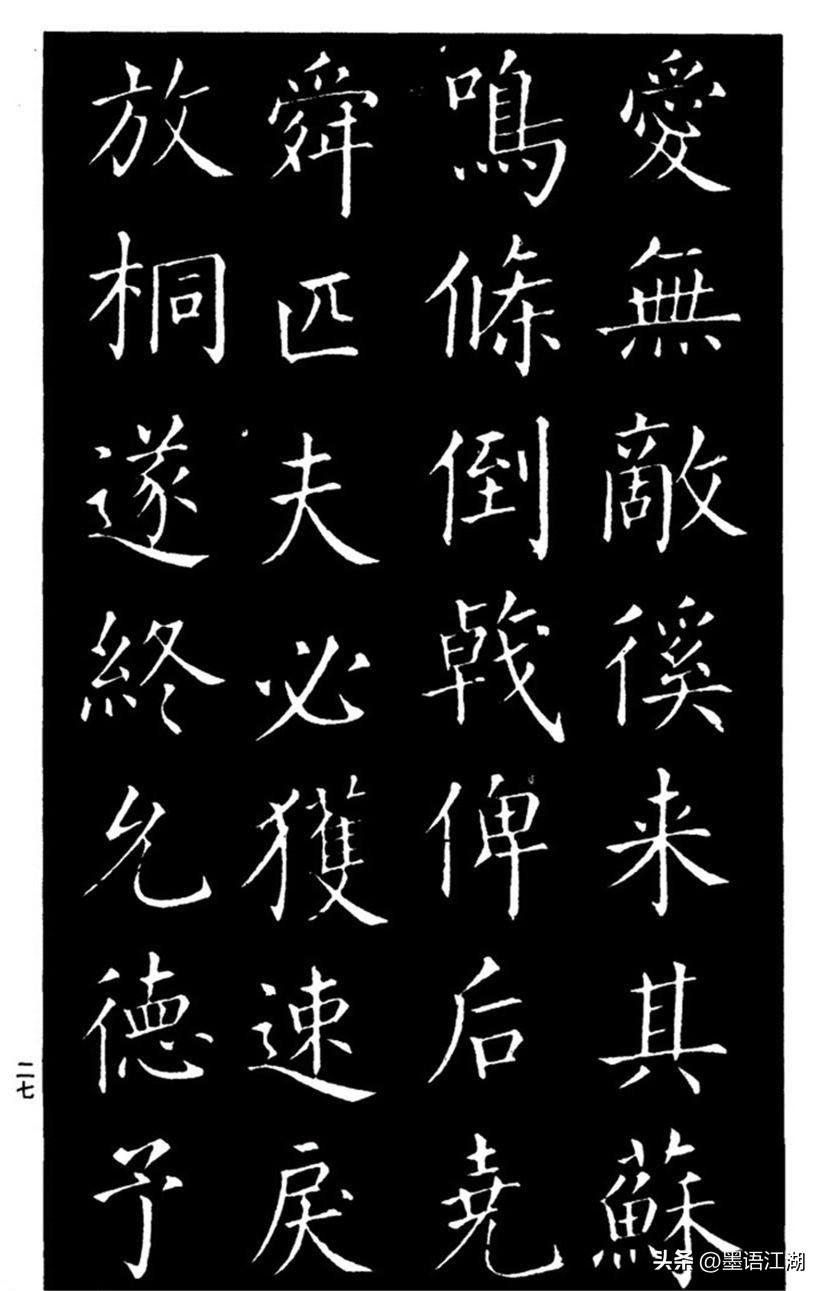 愛無敵徯来其蘇
鳴條倒戟俾后堯
舜匹夫必獲速戾
放桐遂終允德予
二七
头条 @墨语江湖